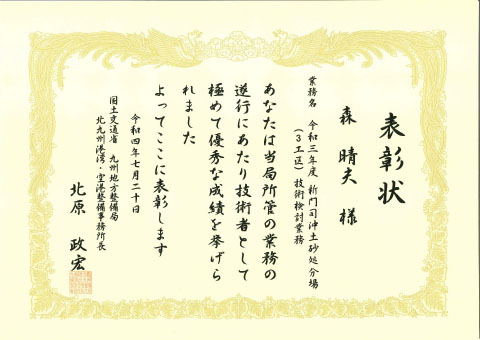 表彰状
森 晴夫 様
業務名 令和三年度 新門司沖土砂処分場
（３工区）技術検討業務
あなたは当局所管の業務の
遂行にあたり技術者として
極めて優秀な成績を挙げら
れました
よってここに表彰します
令和四年七月二十日
国土交通省 九州地方整備局
北九州港湾・空港整備事務所長
北原 政宏